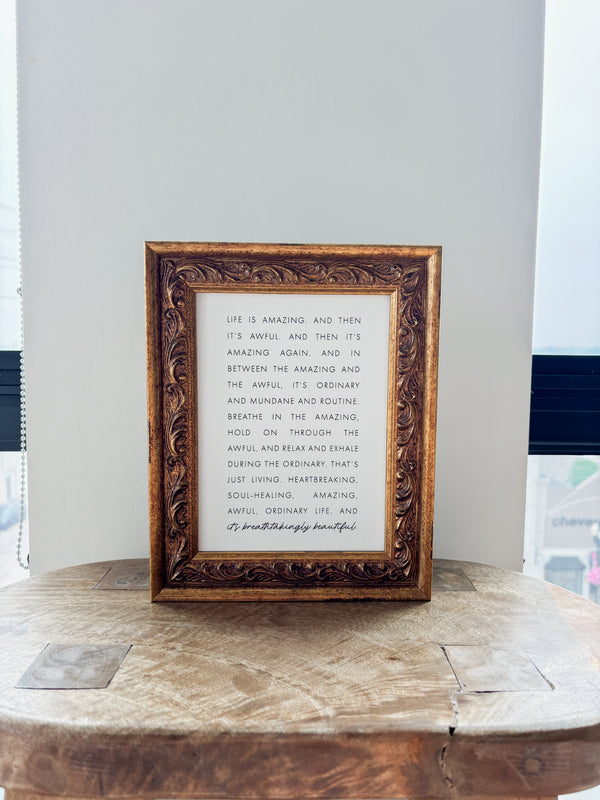 LIFE IS AMAZING. AND THEN
IT'S AWFUL. AND THEN IT'S
AMAZING AGAIN. AND IN
BETWEEN THE AMAZING AND
THE AWFUL, IT'S ORDINARY
AND MUNDANE AND ROUTINE.
BREATHE IN THE AMAZING,
HOLD ON THROUGH THE
AWFUL, AND RELAX AND EXHALE
DURING THE ORDINARY. THAT'S
JUST LIVING. HEARTBREAKING,
SOUL-HEALING, AMAZING,
AWFUL, ORDINARY LIFE. AND
it's breathtakingly beautiful.